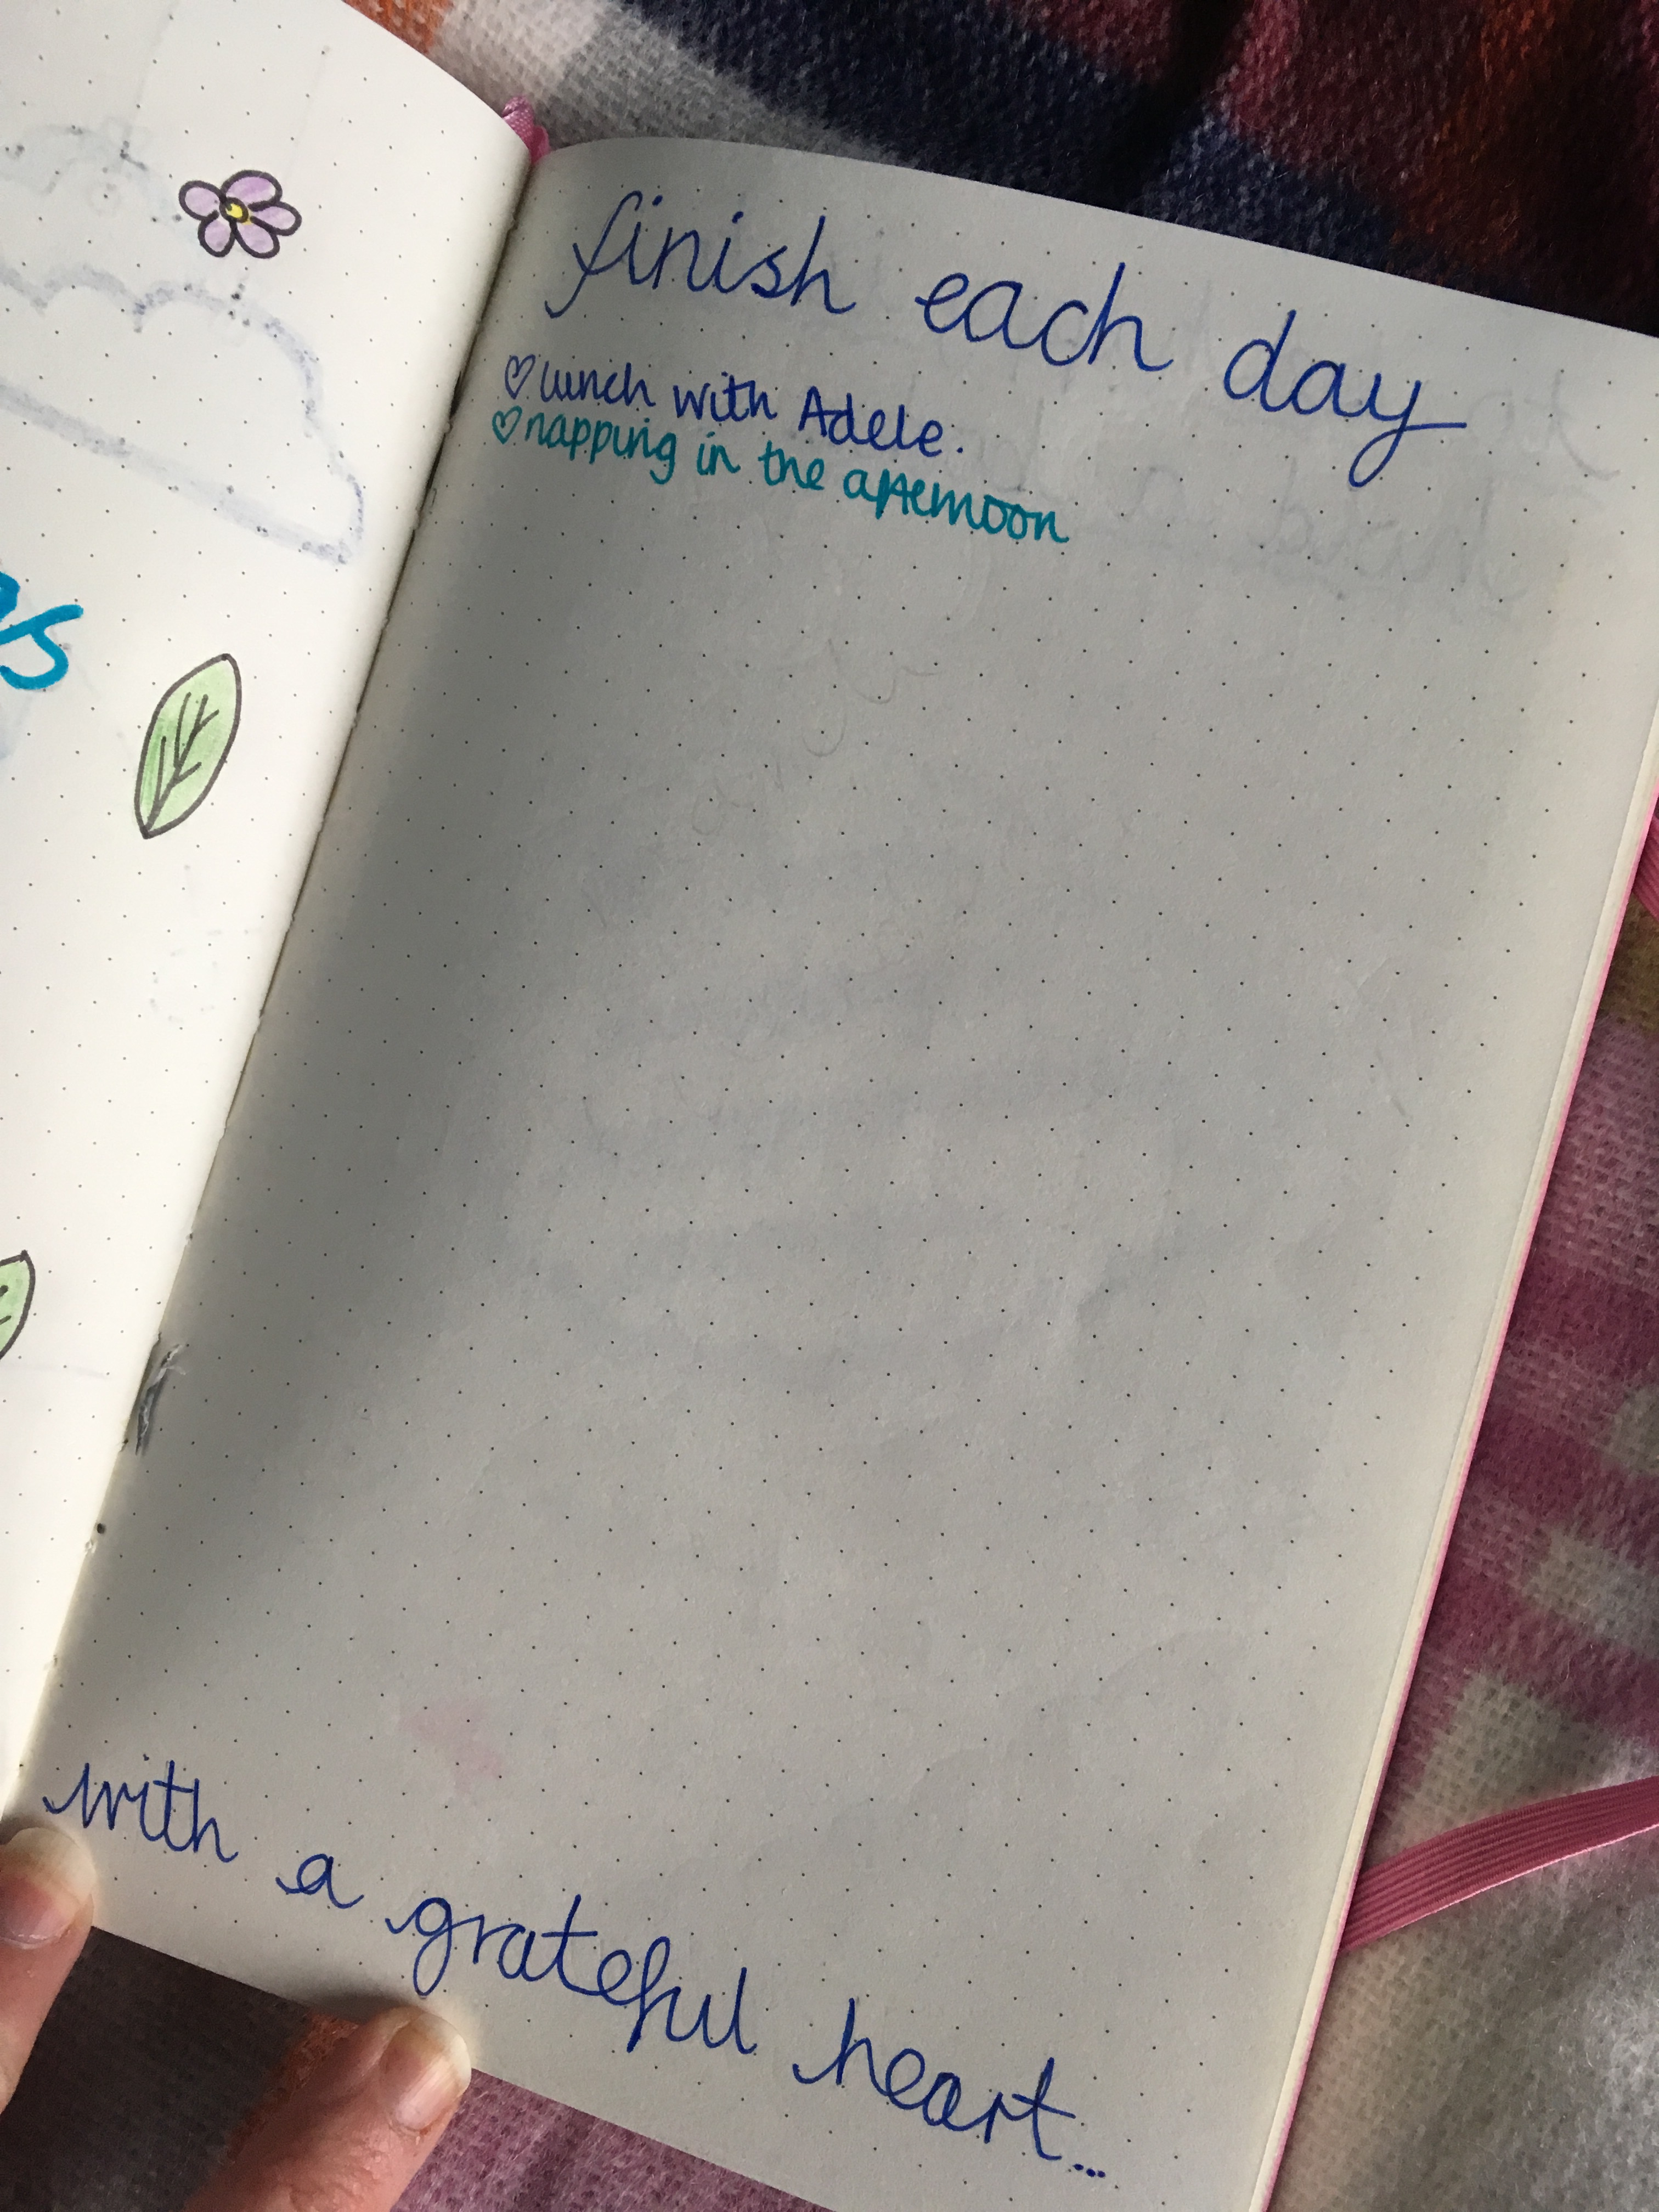 finish each day
♡ lunch with Adele.
♡ napping in the afternoon
with a grateful heart...